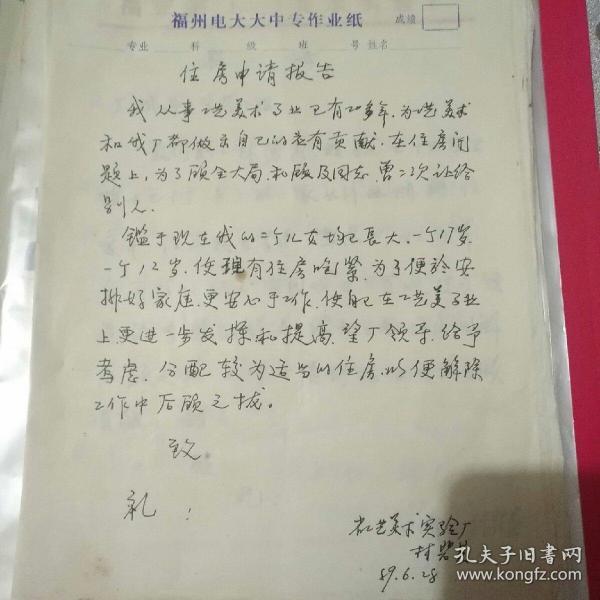 福州电大大中专作业纸 成绩
专业 科 级 班 号 姓名
住房申请报告
我从事工艺美术专业已有20多年,为工艺美术
和我厂都做出自己的应有贡献,在住房问
题上,为了顾全大局,和顾及同志,曾二次让给
别人。
鑑于现在我的二个儿女均已長大,一个17岁,
一个12岁,使现有住房吃緊,为了便於安
排好家庭,更安心于工作,使自己在工艺美术专业
上更进一步发揮和提高,望厂领导给予
考虑,分配较为适当的住房,以便解除
工作中后顾之忧。
致
礼!
工艺美术实验厂
林
89.6.28
孔夫子旧书网
www.kongfz.com